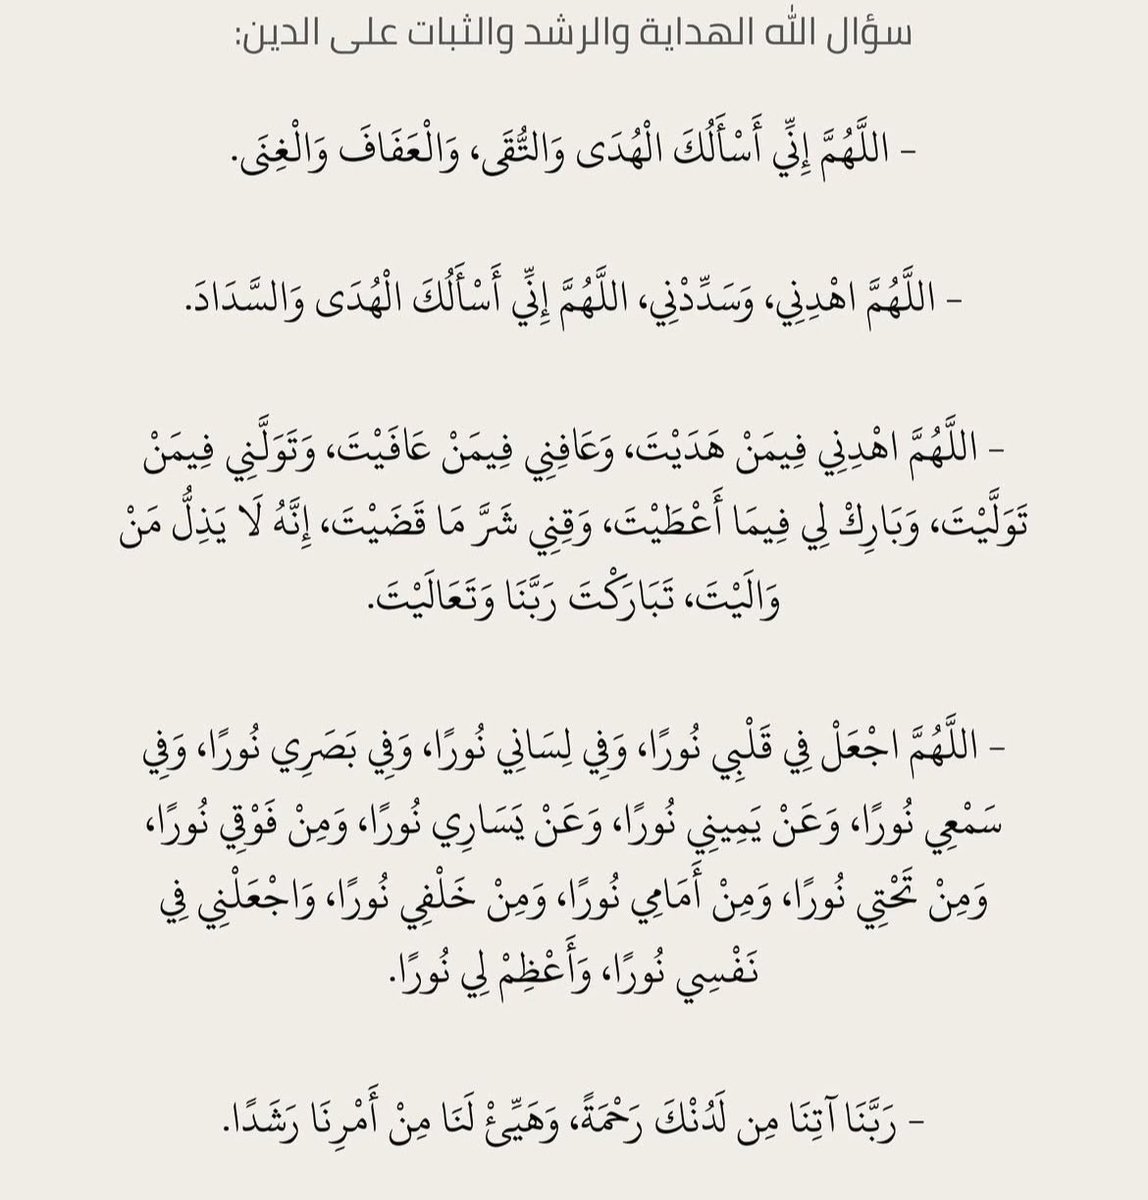 سؤال الله الهداية والرشد والثبات على الدين:
– اللَّهُمَّ إِنِّي أَسْأَلُكَ الْهُدَى وَالتُّقَى، وَالْعَفَافَ وَالْغِنَى.
– اللَّهُمَّ اهْدِنِي، وَسَدِّدْنِي، اللَّهُمَّ إِنِّي أَسْأَلُكَ الْهُدَى وَالسَّدَادَ.
– اللَّهُمَّ اهْدِنِي فِيمَنْ هَدَيْتَ، وَعَافِنِي فِيمَنْ عَافَيْتَ، وَتَوَلَّنِي فِيمَنْ
تَوَلَّيْتَ، وَبَارِكْ لِي فِيمَا أَعْطَيْتَ، وَقِنِي شَرَّ مَا قَضَيْتَ، إِنَّهُ لَا يَذِلُّ مَنْ
وَالَيْتَ، تَبَارَكْتَ رَبَّنَا وَتَعَالَيْتَ.
– اللَّهُمَّ اجْعَلْ فِي قَلْبِي نُورًا، وَفِي لِسَانِي نُورًا، وَفِي بَصَرِي نُورًا، وَفِي
سَمْعِي نُورًا، وَعَنْ يَمِينِي نُورًا، وَعَنْ يَسَارِي نُورًا، وَمِنْ فَوْقِي نُورًا،
وَمِنْ تَحْتِي نُورًا، وَمِنْ أَمَامِي نُورًا، وَمِنْ خَلْفِي نُورًا، وَاجْعَلْنِي فِي
نَفْسِي نُورًا، وَأَعْظِمْ لِي نُورًا.
– رَبَّنَا آتِنَا مِن لَدُنْكَ رَحْمَةً، وَهَيِّئْ لَنَا مِنْ أَمْرِنَا رَشَدًا.